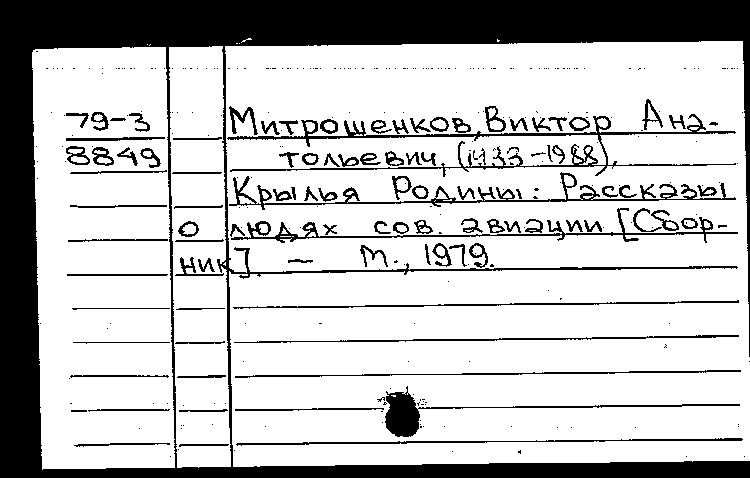 79-3 Митрошенков, Виктор Ана-
8849 тольевич, (1933-1988),
Крылья Родины: Рассказы
о людях сов. авиации. [Сбор-
ник]. — М., 1979.